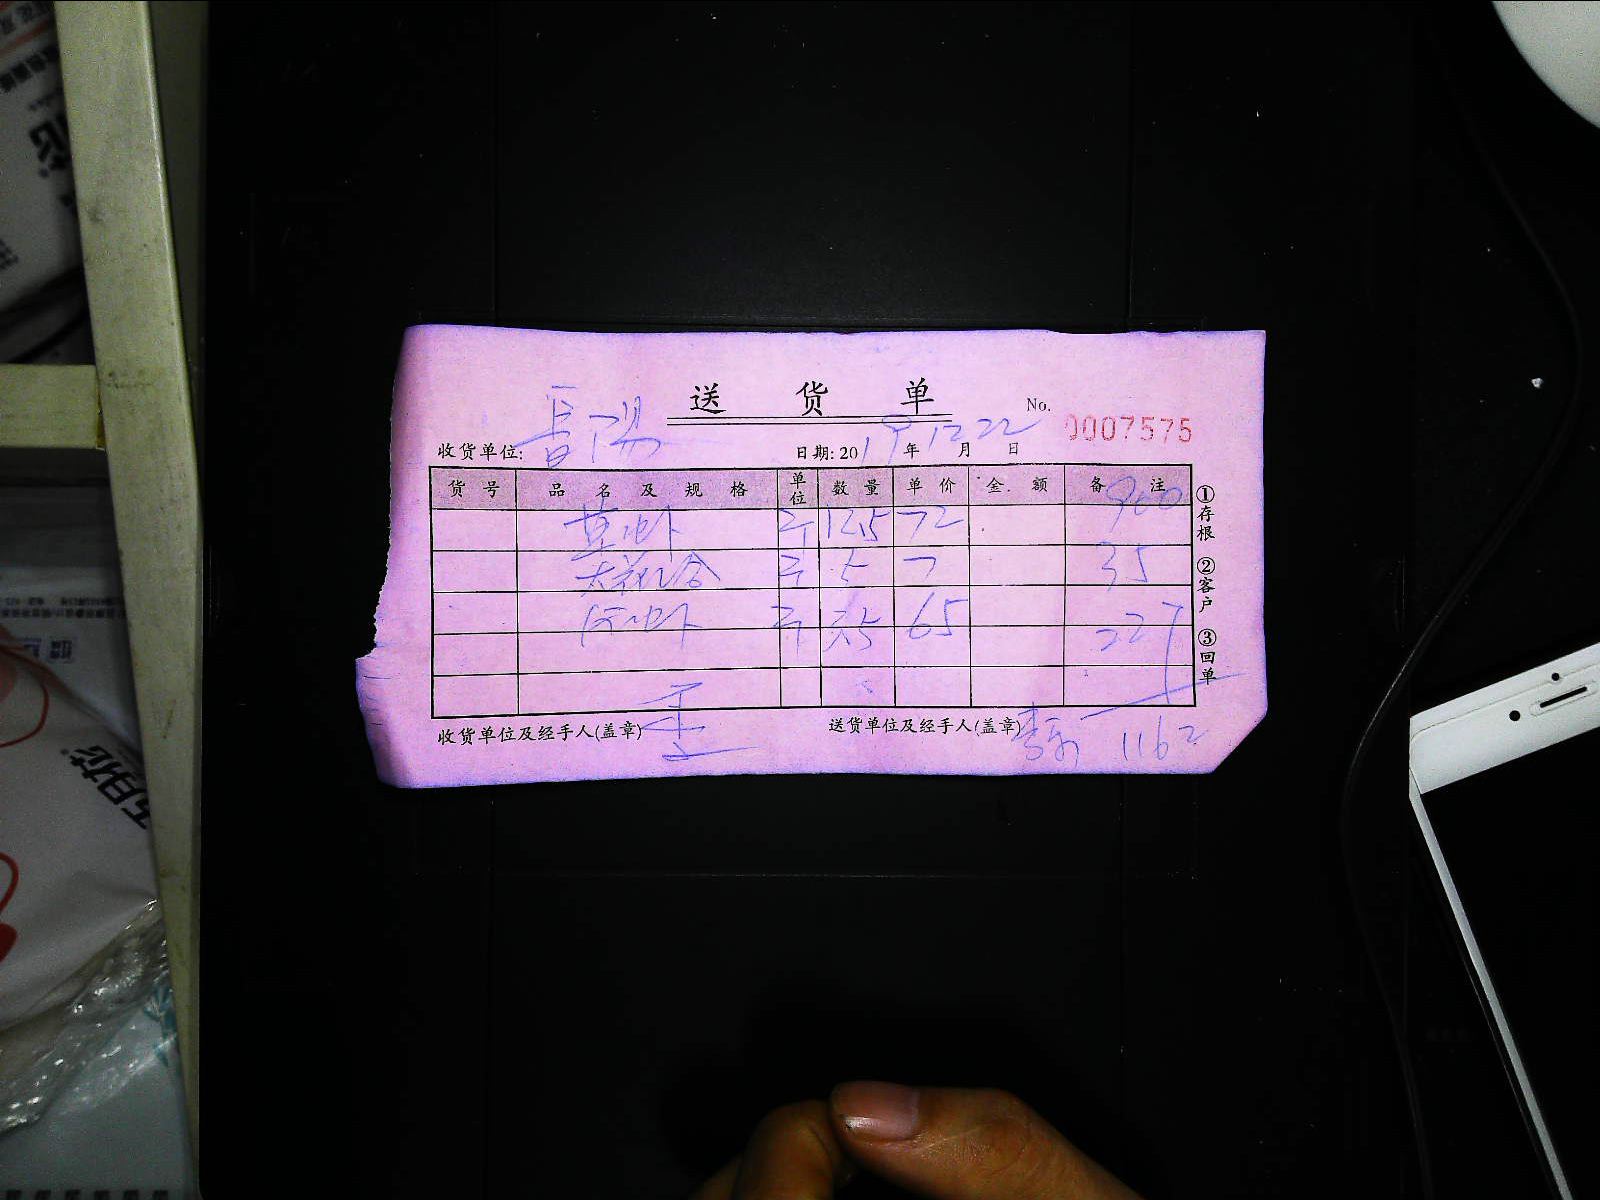 送 货 单
No. 0007575
收货单位: 晋阳 日期: 2019年12月22日
货号 品名及规格 单位 数量 单价 金额 备注
草虾 斤 12.5 72 900
大花合 斤 5 7 35
虾 斤 3.5 65 227
①存根 ②客户 ③回单
收货单位及经手人(盖章) 送货单位及经手人(盖章) 1162